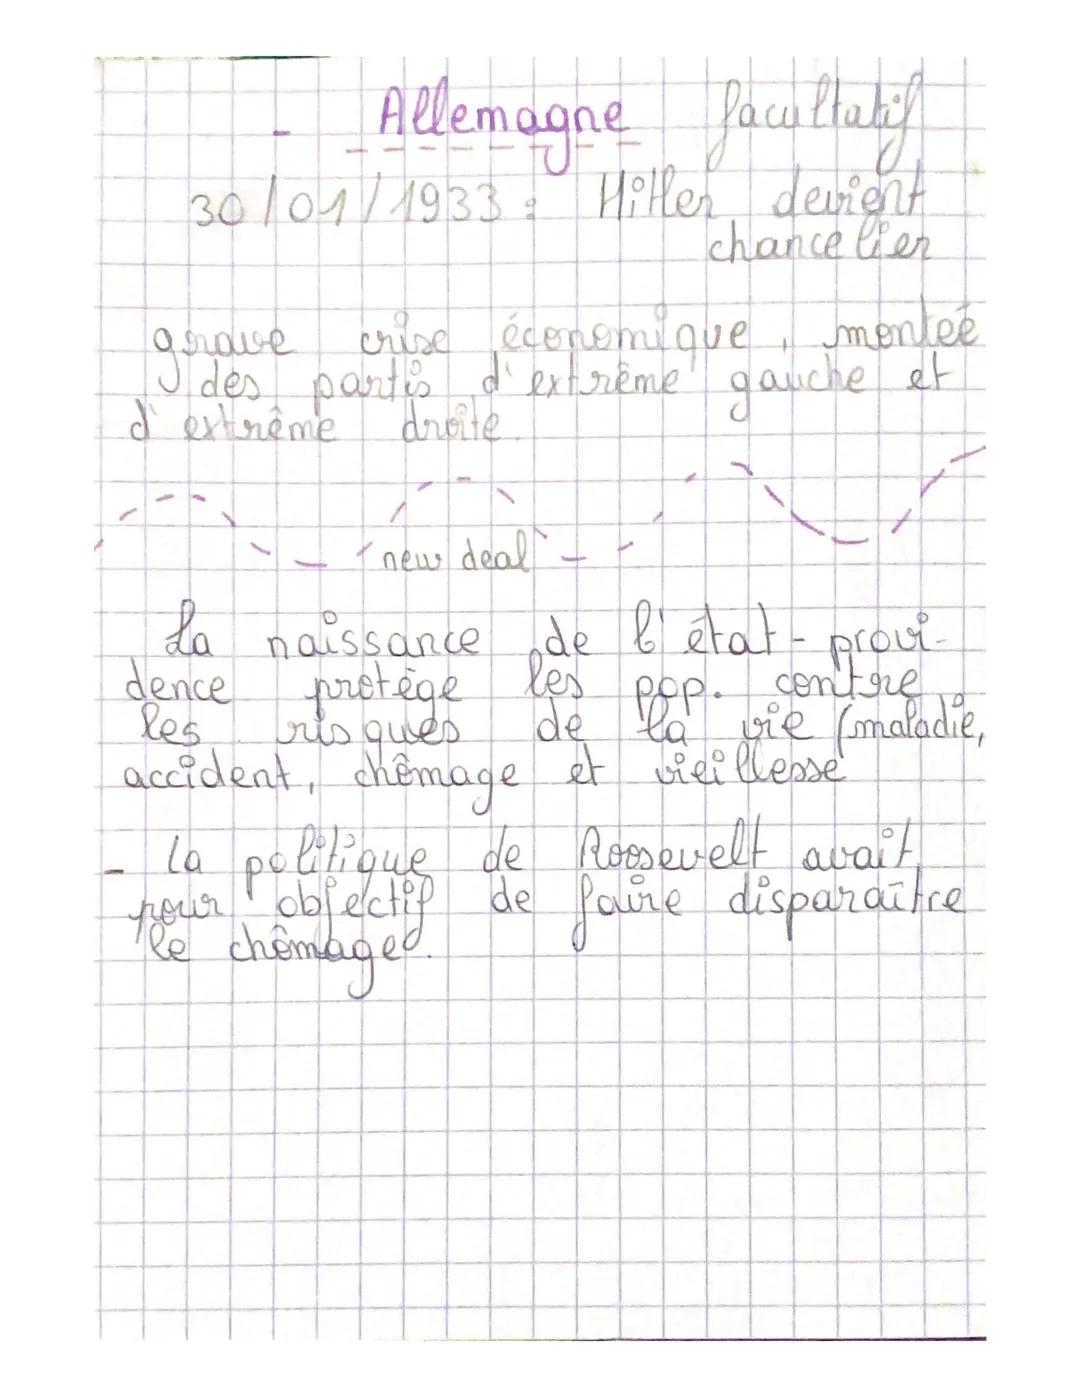 - Allemagne facultatif
30/01/1933 : Hitler devient
chancelier
grave crise économique, montée
des partis d'extrême gauche et
d'extrême droite.
new deal
La naissance de l'état-provi-
dence protège les pop. contre
les risques de la vie (maladie,
accident, chômage et vieillesse
- la politique de Roosevelt avait
pour objectif de faire disparaître
le chômage.